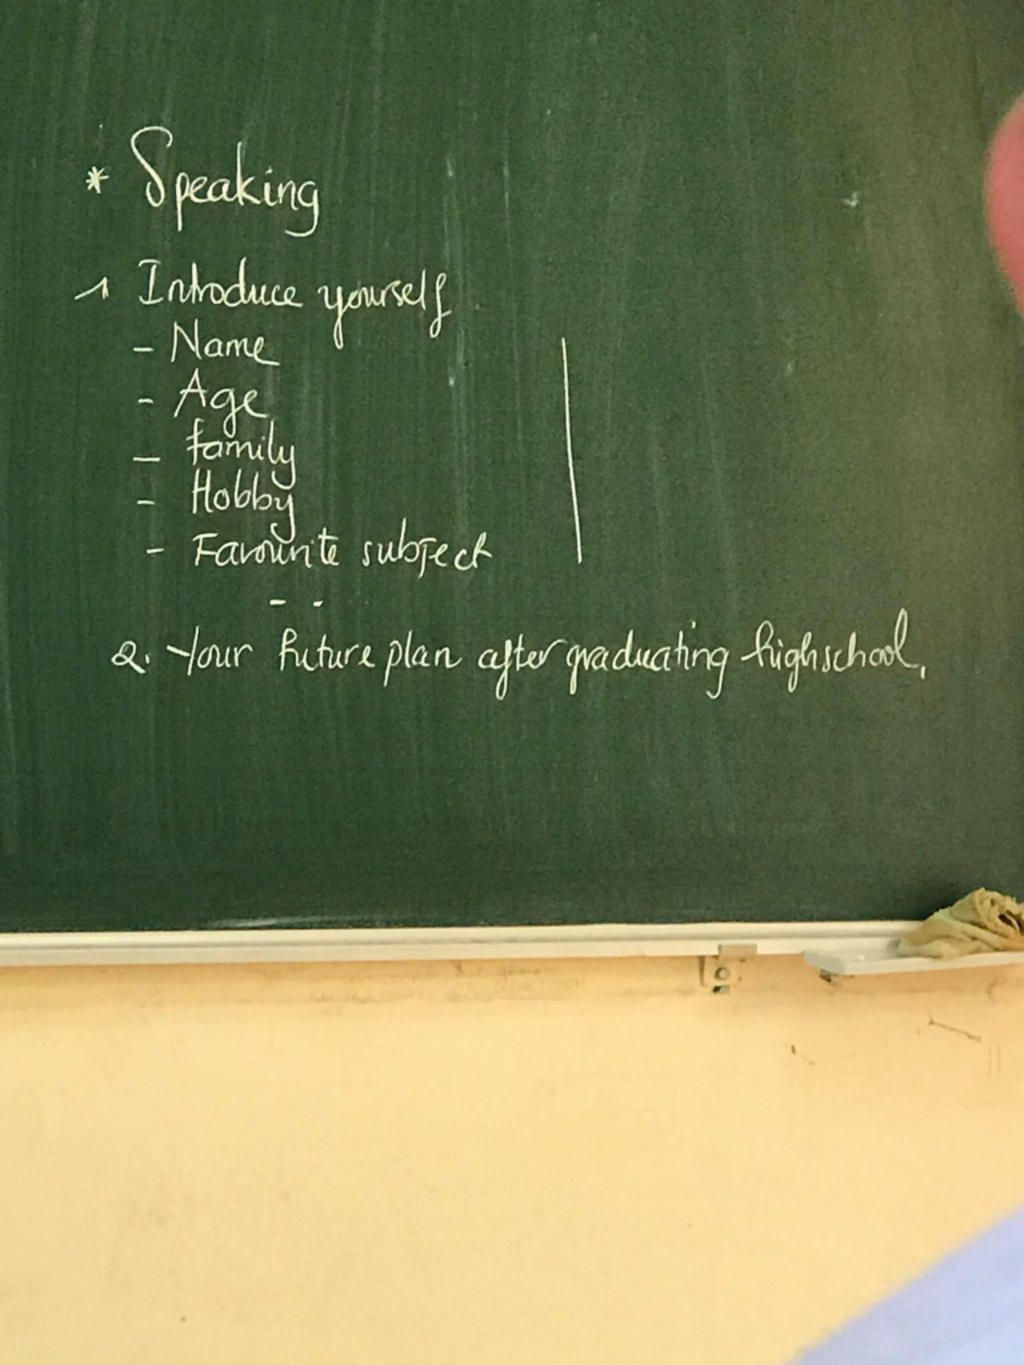 * Speaking
1 Introduce yourself
- Name
- Age
- family
- Hobby
- Favourite subject
- -
2. Your future plan after graduating high school.